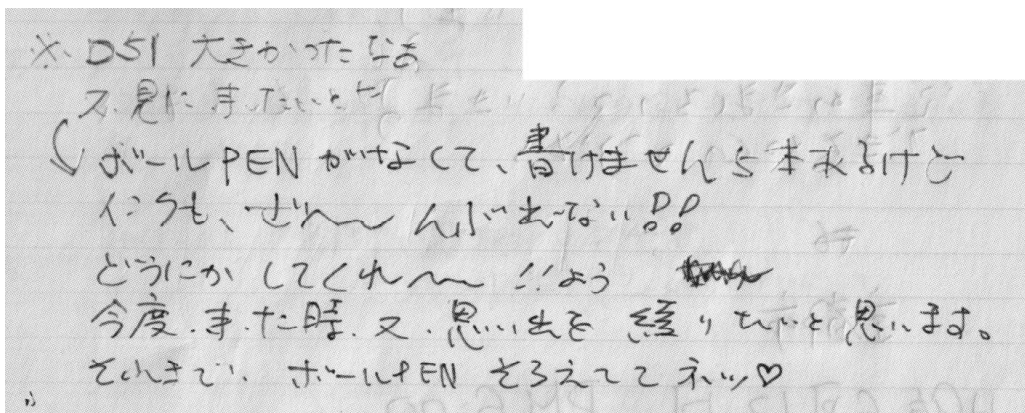 ※ D51 大きかったなあ
又.見に きたいとも
ボールPEN がなくて、書けません 5本あるけど
インクも、ぜん〜〜んぶ出ない!!
どうにか してくれ〜〜 !!よう
今度.きた時.又.思い出を 綴りたいと思います。
それまで、ボールPEN そろえてて ネッ♡